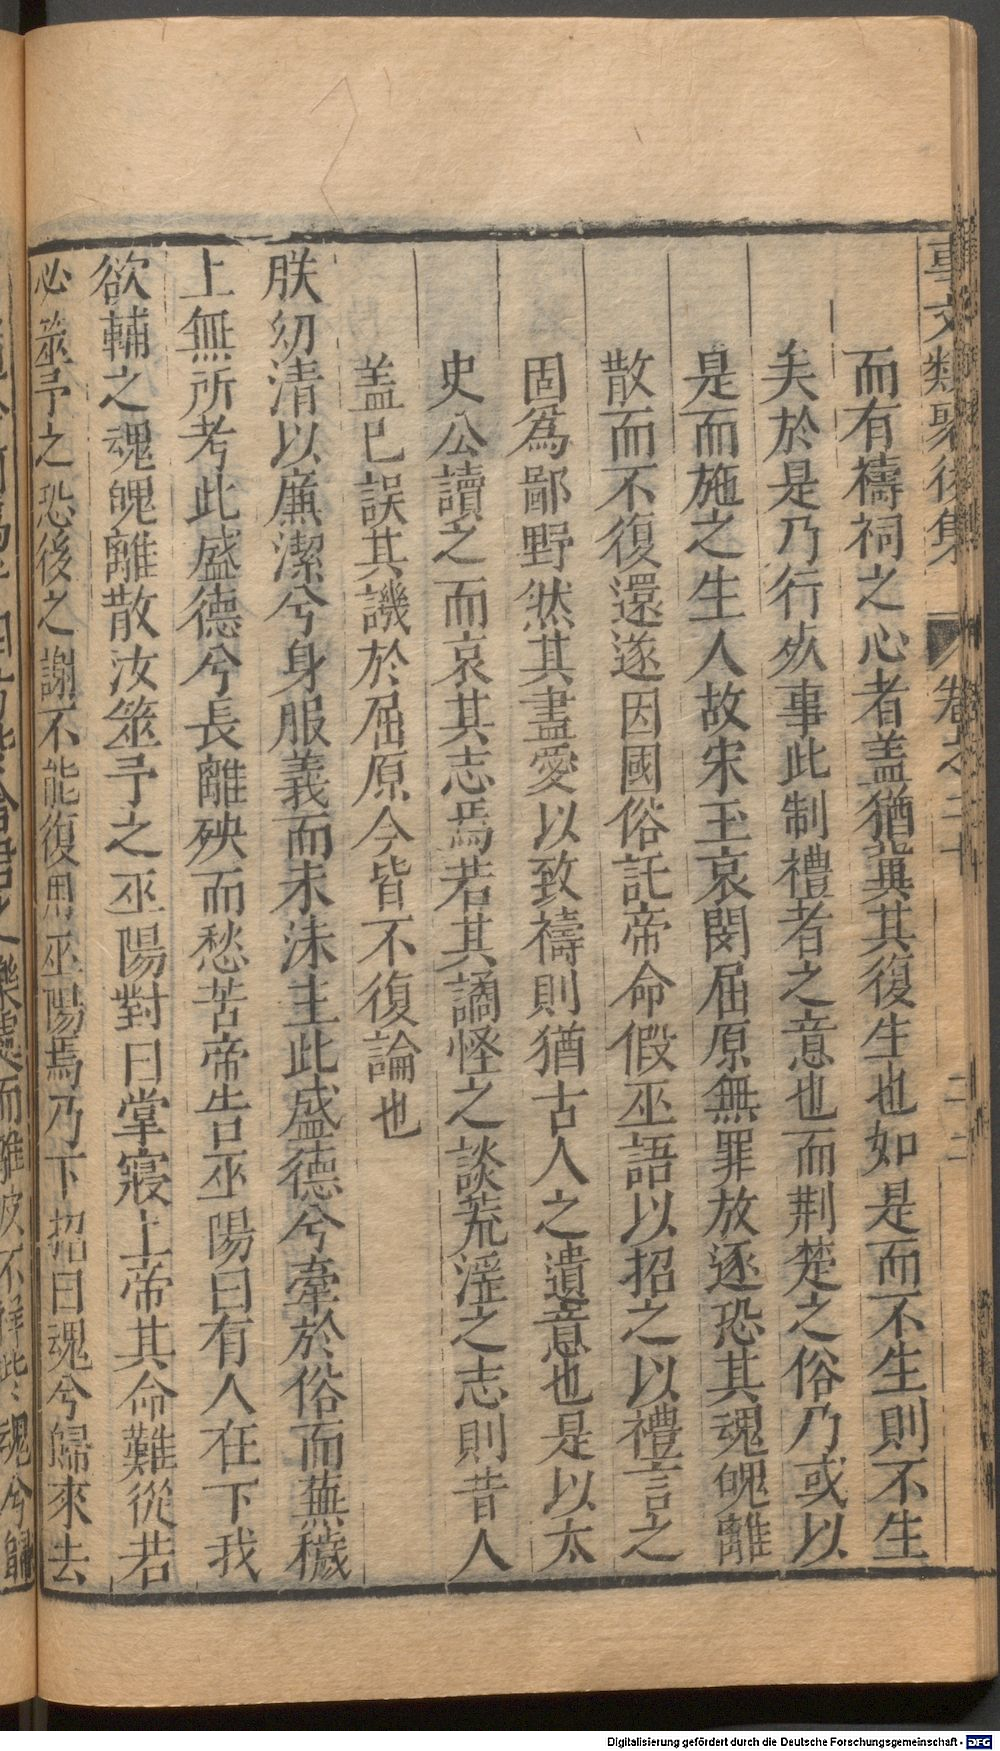 事文類聚後集 卷之二十 二二
而有禱祠之心者盖猶兾其復生也如是而不生則不生
矣於是乃行死事此制禮者之意也而荆楚之俗乃或以
是而施之生人故宋玉哀閔屈原無罪放逐恐其魂魄離
散而不復還遂因國俗託帝命假巫語以招之以禮言之
固爲鄙野然其盡愛以致禱則猶古人之遺意也是以太
史公讀之而哀其志焉若其譎怪之談荒淫之志則昔人
盖已誤其譏於屈原今皆不復論也
朕幼清以廉潔兮身服義而未沬主此盛德兮牽於俗而蕪穢
上無所考此盛德兮長離殃而愁苦帝告巫陽曰有人在下我
欲輔之魂魄離散汝筮予之巫陽對曰掌寢上帝其命難從若
必筮予之恐後之謝不能復用巫陽焉乃下招曰魂兮歸來去
樂處而離彼不祥些魂兮歸
Digitalisierung gefördert durch die Deutsche Forschungsgemeinschaft - DFG